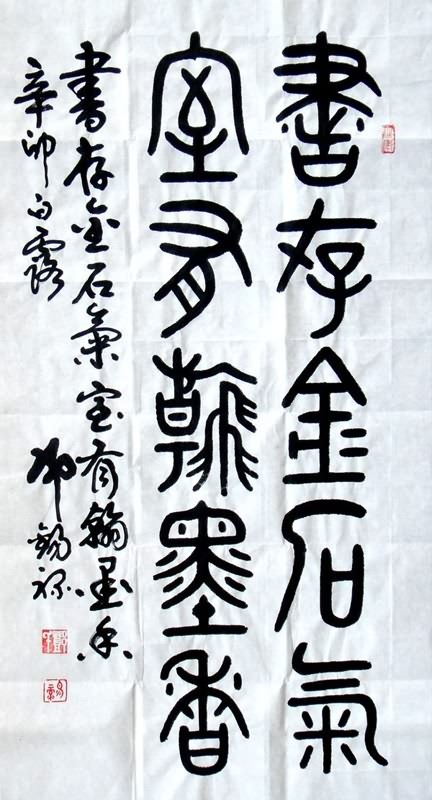 書存金石氣
室有翰墨香
書存金石氣室有翰墨香
辛卯白露
錫